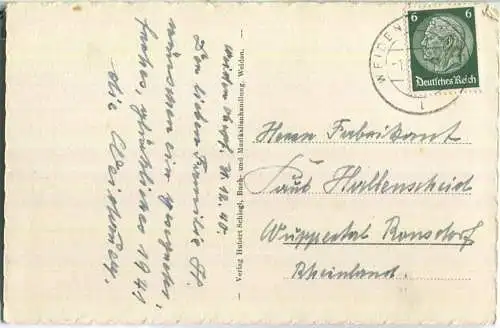 Weiden Opf. 31.12.40
Der lieben Familie H.
wünschen ein gesegnetes,
frohes, glückliches 1941
die Weidner.
Verlag Hubert Schlegl, Buch- und Musikalienhandlung, Weiden.
WEIDEN
6 6
Deutsches Reich
Herrn Fabrikant
Paul Hallenscheid
Wuppertal Ronsdorf
Rheinland.